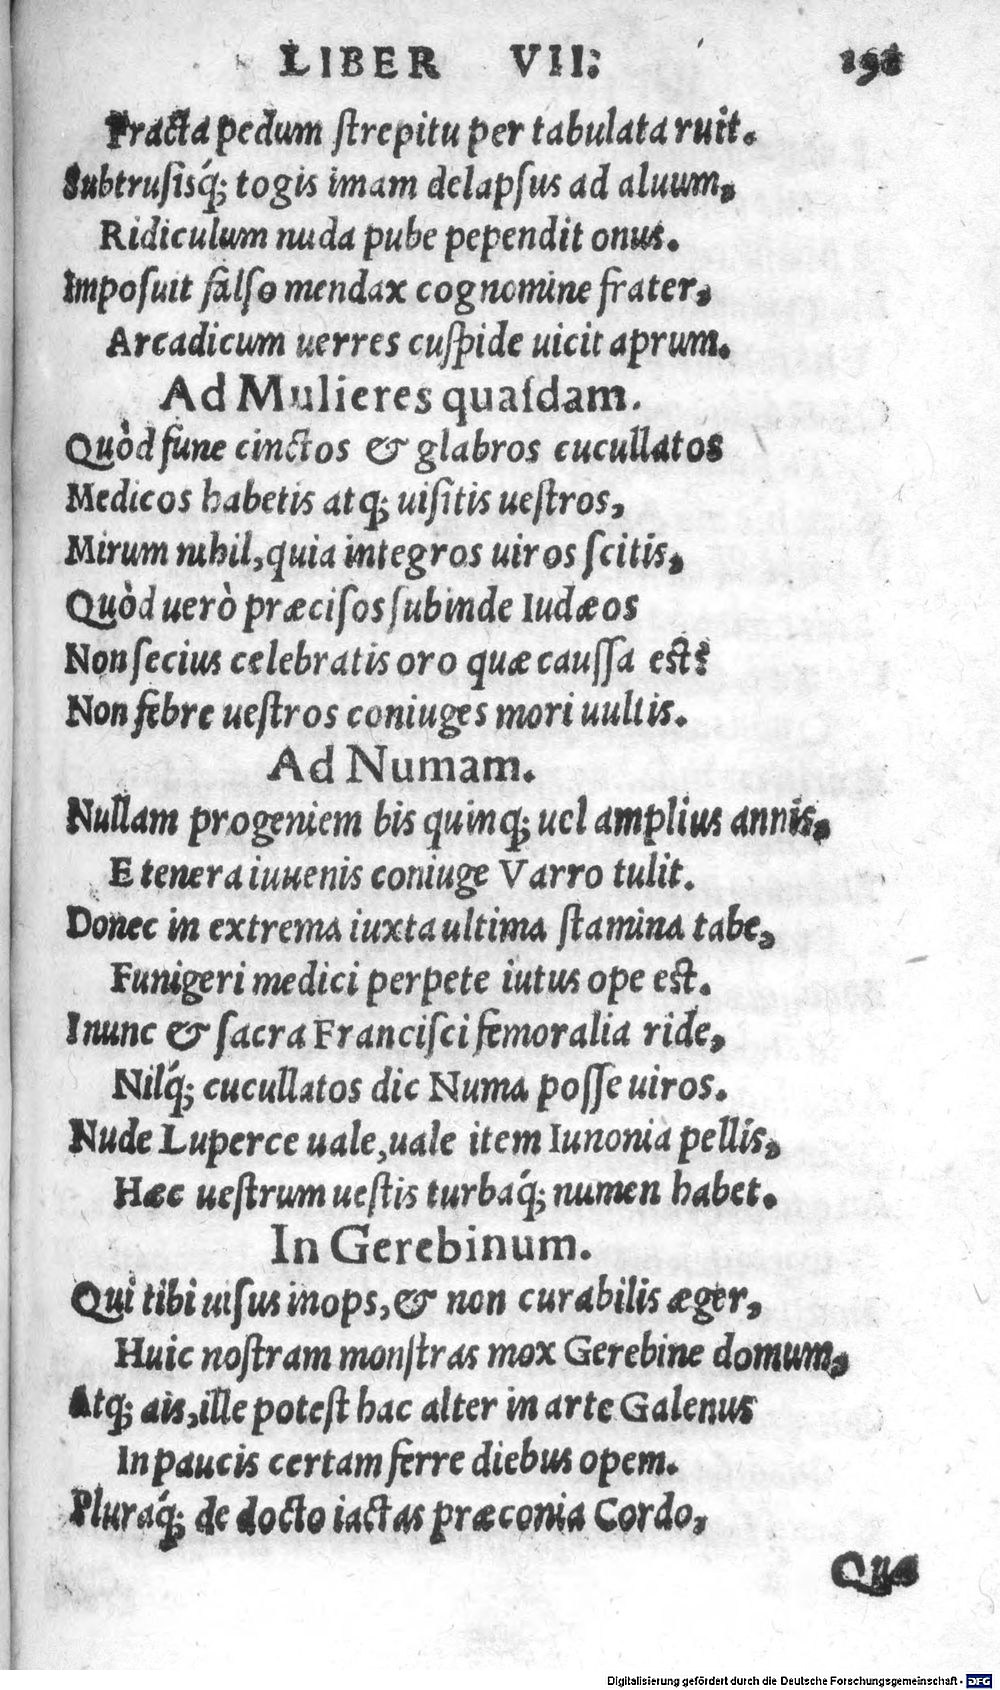 LIBER VII: 198
Fracta pedum ſtrepitu per tabulata ruit.
Subtruſisq́; togis imam delapſus ad aluum,
Ridiculum nuda pube pependit onus.
Impoſuit falſo mendax cognomine frater,
Arcadicum uerres cuſpide uicit aprum.
Ad Mulieres quaſdam.
Quòd fune cinctos & glabros cucullatos
Medicos habetis atq; uiſitis ueſtros,
Mirum nihil, quia integros uiros ſcitis,
Quòd uerò præciſos ſubinde Iudæos
Non ſecius celebratis oro quæ cauſſa eſt?
Non febre ueſtros coniuges mori uultis.
Ad Numam.
Nullam progeniem bis quinq; uel amplius annis,
E tenera iuuenis coniuge Varro tulit.
Donec in extrema iuxta ultima ſtamina tabe,
Funigeri medici perpete iutus ope eſt.
I nunc & ſacra Franciſci femoralia ride,
Nilq́; cucullatos dic Numa poſſe uiros.
Nude Luperce uale, uale item Iunonia pellis,
Hæc ueſtrum ueſtis turbaq́; numen habet.
In Gerebinum.
Qui tibi uiſus inops, & non curabilis æger,
Huic noſtram monſtras mox Gerebine domum,
Atq; ais, ille poteſt hac alter in arte Galenus
In paucis certam ferre diebus opem.
Pluraq́; de docto iactas præconia Cordo,
Quæ
Digitalisierung gefördert durch die Deutsche Forschungsgemeinschaft - DFG